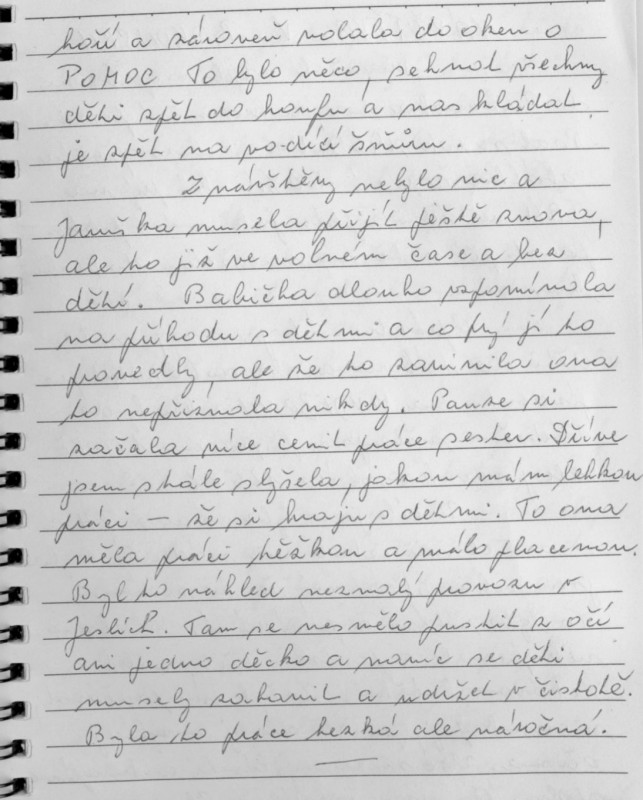 hoří a zároveň volala do oken o
POMOC To bylo něco, sehnat všechny
děti zpět do houfu a naskládat
je zpět na vo-dící šňůru.
Z návštěvy nebylo nic a
Januška musela přijít ještě znova,
ale to již ve volném čase a bez
dětí. Babička dlouho vzpomínala
na příhodu s dětmi a co prý jí to
provedly, ale že to zavinila ona
to nepřiznala nikdy. Pouze si
začala více cenit práce sester. Dříve
jsem stále slyšela, jakou mám lehkou
práci – že si hraju s dětmi. To ona
měla práci těžkou a málo placenou.
Byl to náhled neznalý provozu v
Jeslích. Tam se nesmělo pustit z očí
ani jedno děcko a navíc se děti
musely zabavit a udržet v čistotě.
Byla to práce hezká ale náročná.